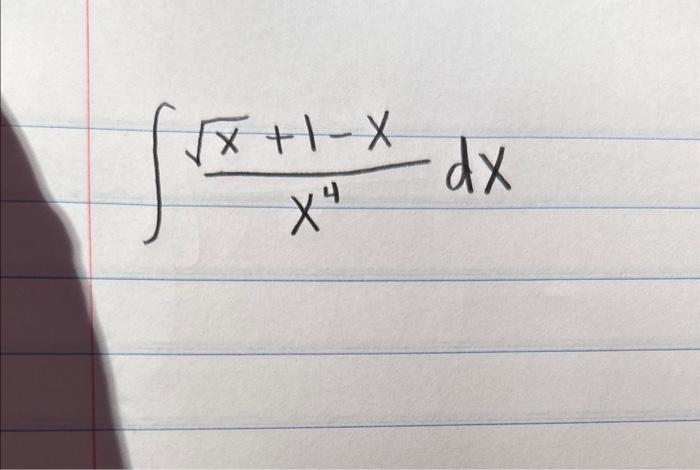 ∫ (√x + 1 - x)/x⁴ dx